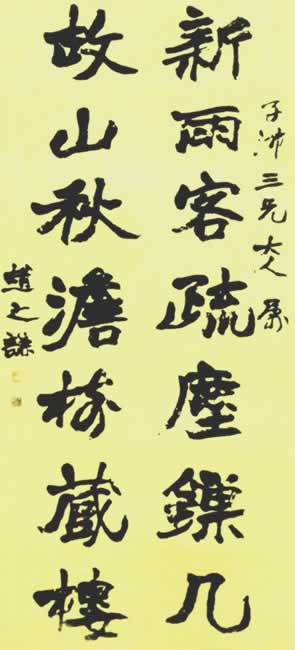 子沛三兄大人屬
新雨客疏塵鏁几
故山秋澹樹藏樓
趙之謙